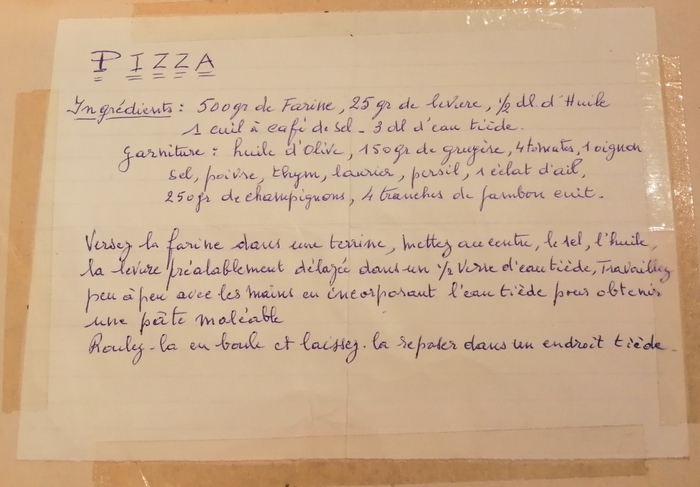 PIZZA
Ingrédients : 500gr de Farine, 25 gr de levure, 1/2 dl d'Huile
1 cuil à café de sel - 3 dl d'eau tiède.
garniture : huile d'olive, 150gr de gruyère, 4 tomates, 1 oignon
sel, poivre, thym, laurier, persil, 1 éclat d'ail,
250gr de champignons, 4 tranches de jambon cuit.
Versez la farine dans une terrine, mettez au centre, le sel, l'huile,
la levure préalablement délayée dans un 1/2 verre d'eau tiède, Travaillez
peu à peu avec les mains en incorporant l'eau tiède pour obtenir
une pâte maléable
Roulez-la en boule et laissez-la reposer dans un endroit tiède.